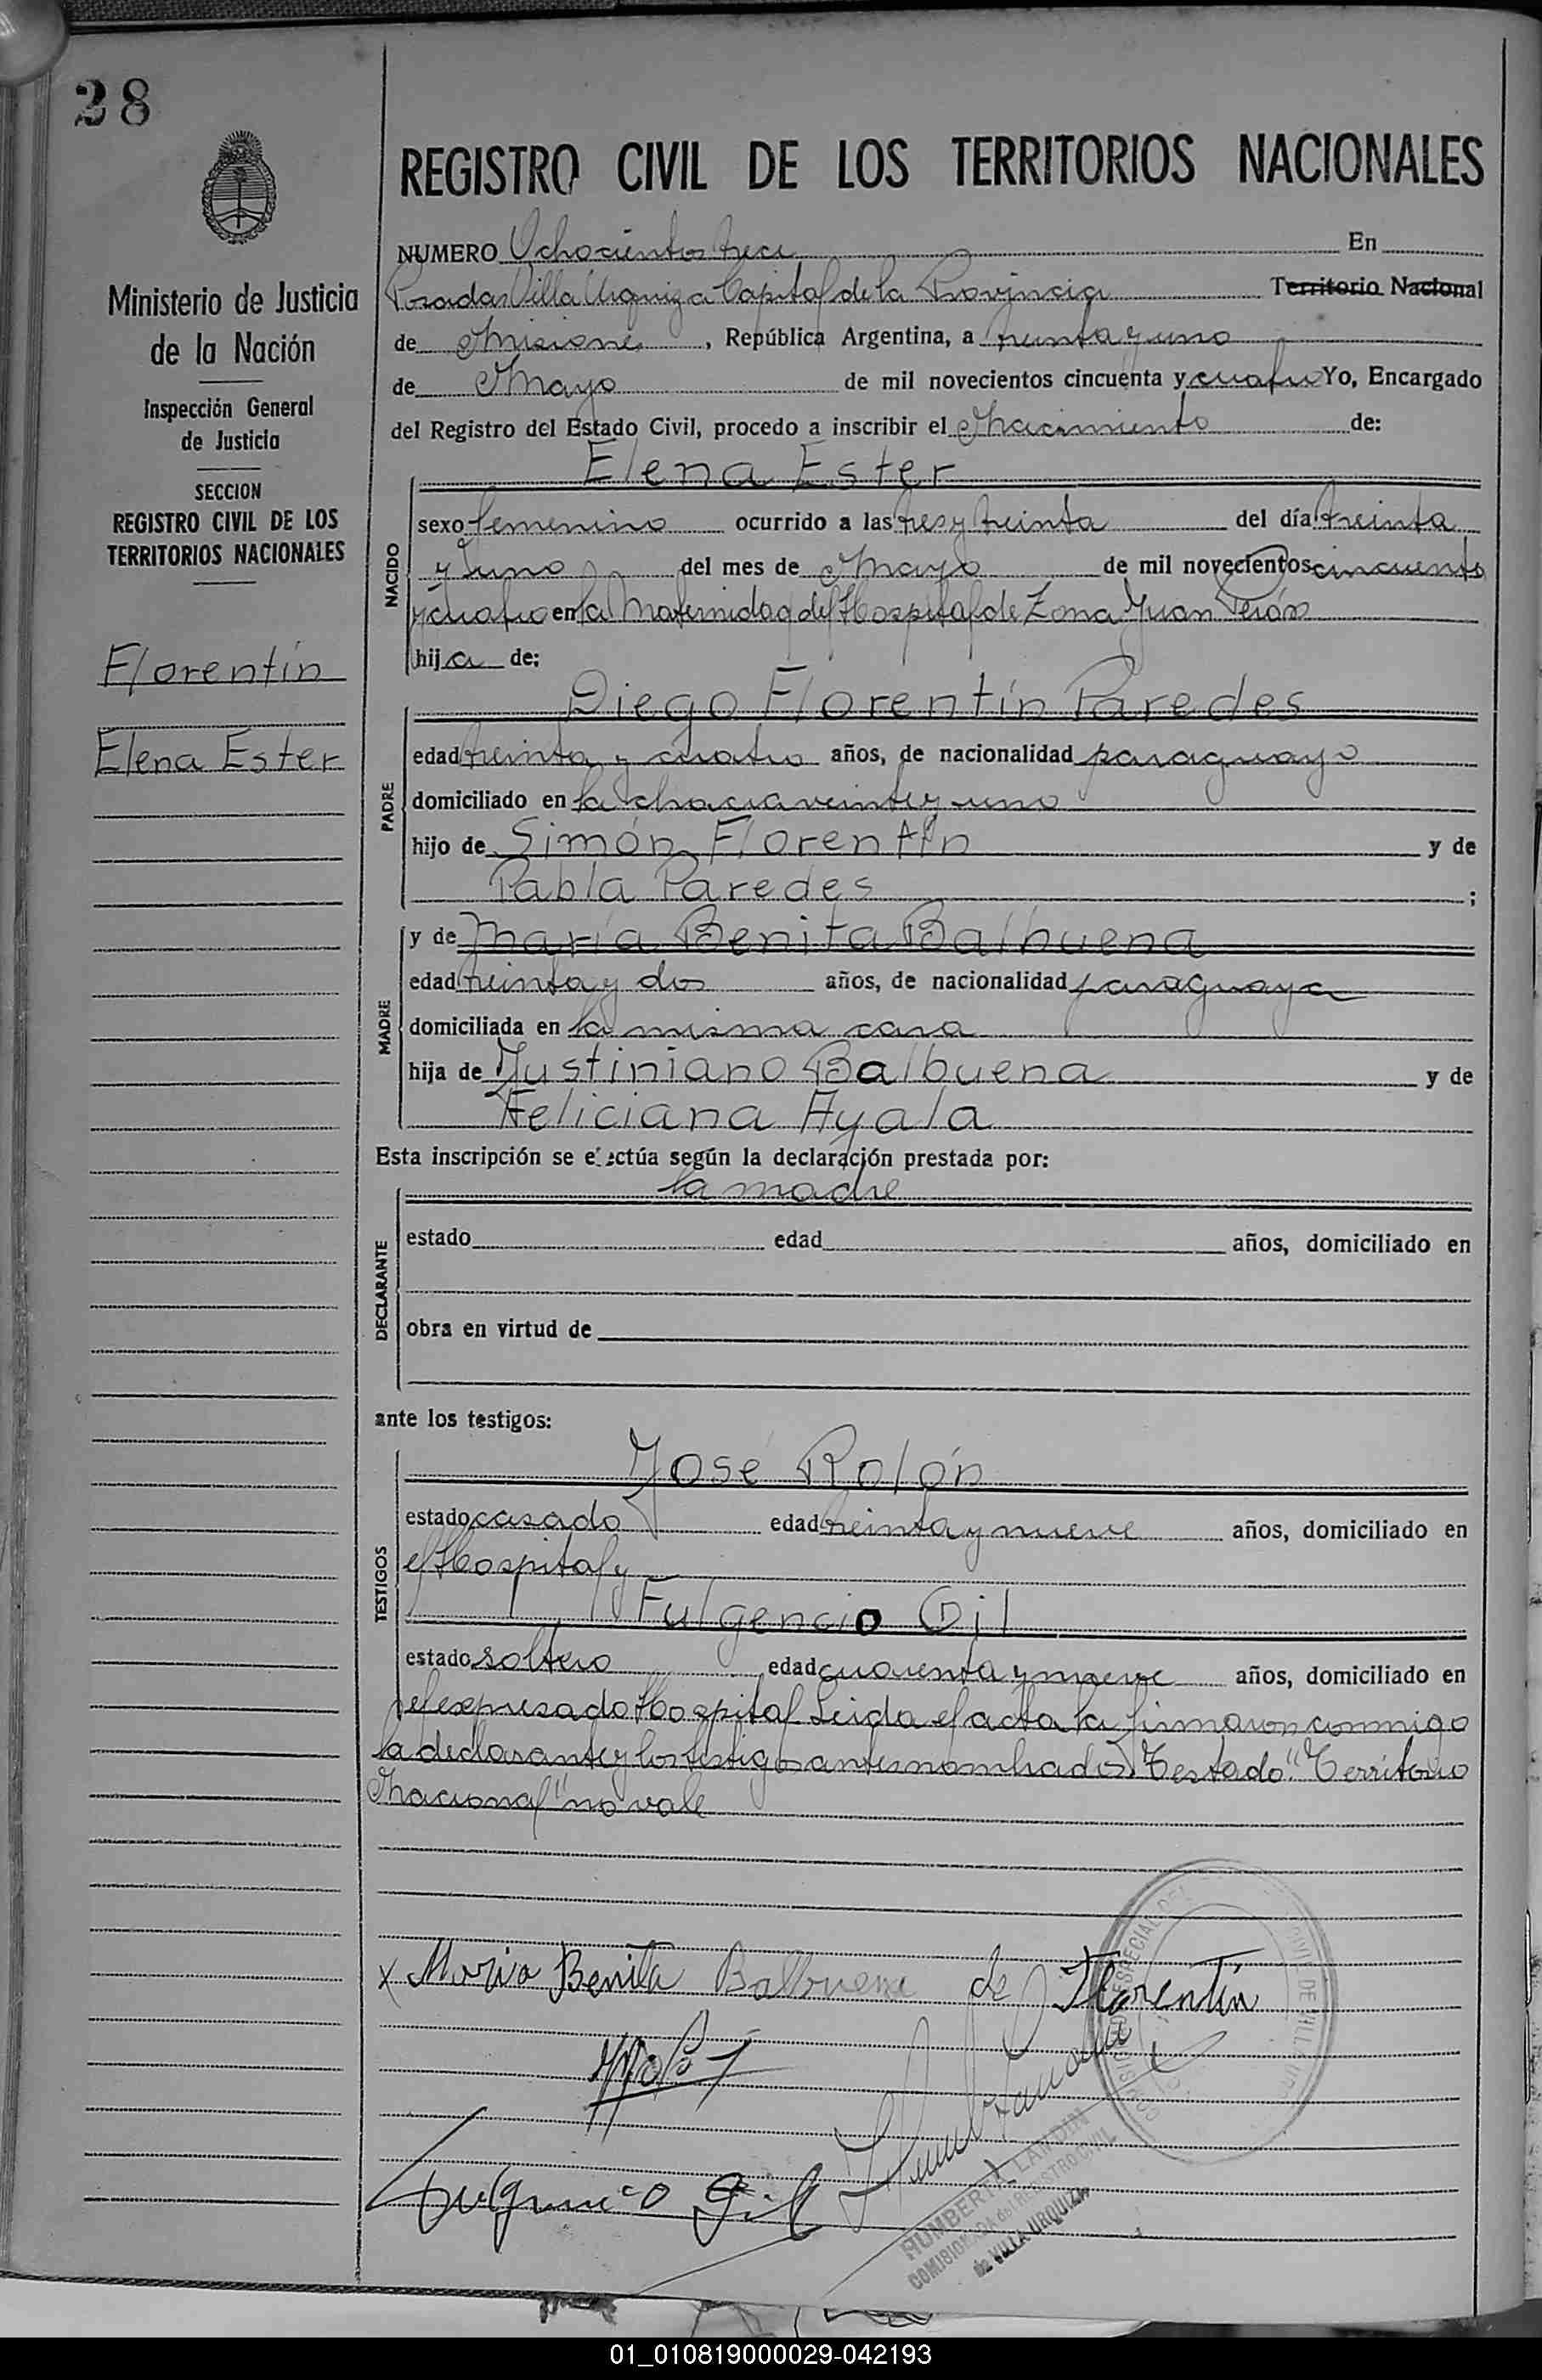 28
REGISTRO CIVIL DE LOS TERRITORIOS NACIONALES
NUMERO Ochocientos trece En
Posadas Villa Urquiza Capital de la Provincia Territorio Nacional
de Misiones, República Argentina, a treinta y uno
de Mayo de mil novecientos cincuenta y cuatro Yo, Encargado
del Registro del Estado Civil, procedo a inscribir el Nacimiento de:
Ministerio de Justicia
de la Nación
Inspección General
de Justicia
SECCION
REGISTRO CIVIL DE LOS
TERRITORIOS NACIONALES
Florentín
Elena Ester
NACIDO
Elena Ester
sexo femenino ocurrido a las tres y treinta del día treinta
y uno del mes de Mayo de mil novecientos cincuenta
y cuatro en la Maternidad del Hospital de Zona Juan Perón
hija de:
PADRE
Diego Florentín Paredes
edad treinta y cuatro años, de nacionalidad paraguayo
domiciliado en la chacra veinte y uno
hijo de Simón Florentín y de
Pabla Paredes ;
MADRE
y de María Benita Balbuena
edad treinta y dos años, de nacionalidad paraguaya
domiciliada en la misma casa
hija de Justiniano Balbuena y de
Feliciana Ayala
Esta inscripción se efectúa según la declaración prestada por:
DECLARANTE
la madre
estado edad años, domiciliado en
obra en virtud de
ante los testigos:
TESTIGOS
José Rolón
estado casado edad treinta y nueve años, domiciliado en
el Hospital y
Fulgencio Gil
estado soltero edad cuarenta y nueve años, domiciliado en
el expresado Hospital Leida el acta la firmaron conmigo
la declarante y los testigos antes nombrados. Testado: "Territorio
Nacional" no vale
x Maria Benita Balbuena de Florentín
Fulgencio Gil
HUMBERTA LANDIN
COMISIONADA del REGISTRO CIVIL
de VILLA URQUIZA
01_010819000029-042193